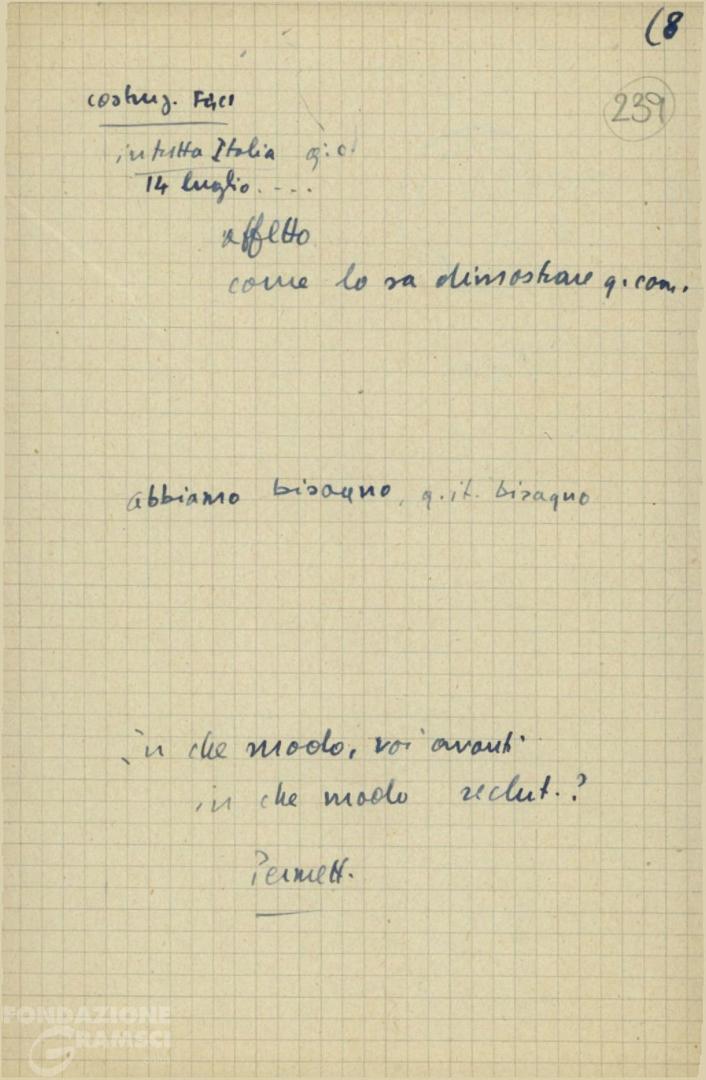 (8
239
costruz. FGCI
in tutta Italia
14 luglio. - - -
affetto
come lo sa dimostrare g. com.
abbiamo bisogno, g. it. bisogno
in che modo, voi avanti
in che modo reclut. ?
Permett.
FONDAZIONE
GRAMSCI